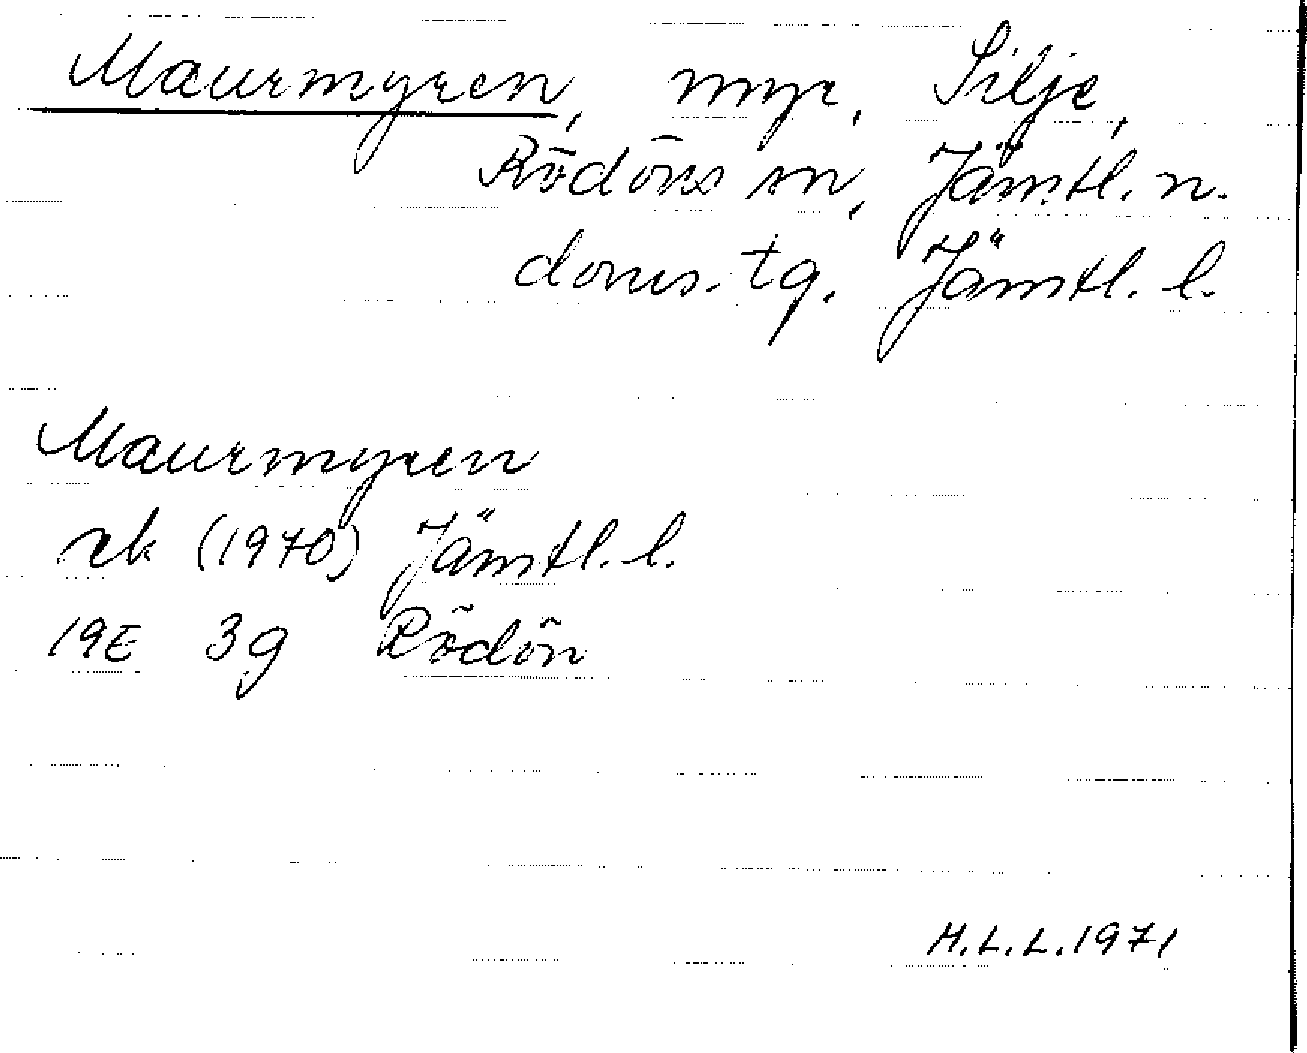 Maurmyren, myr, Silje,
Rödöns sn, Jämtl. n.
doms. tg. Jämtl. l.
Maurmyren
rk (1970) Jämtl. l.
19E 3g Rödön
H.L.L. 1971